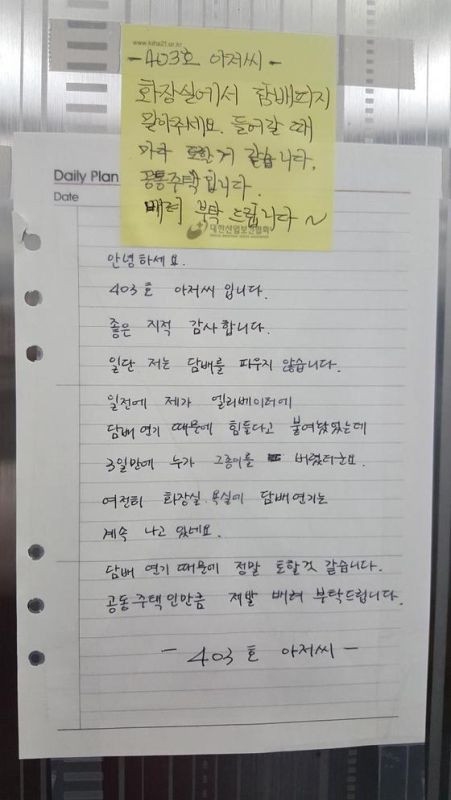 www.kiha21.or.kr
-403호 아저씨-
화장실에서 담배피지
말아주세요. 들어갈 때
마다 토할거 같습니다.
공통주택입니다.
배려 부탁 드립니다~
대한산업보건협회
Daily Plan
Date
안녕하세요.
403호 아저씨 입니다.
좋은 지적 감사합니다.
일단 저는 담배를 피우지 않습니다.
일전에 제가 엘리베이터에
담배연기 때문에 힘들다고 붙여놨었는데
3일만에 누가 그종이를 버렸더군요.
여전히 화장실.욕실에 담배연기는
계속 나고 있네요.
담배 연기때문에 정말 토할것 같습니다.
공동주택인만큼 제발 배려 부탁드립니다.
- 403호 아저씨 -